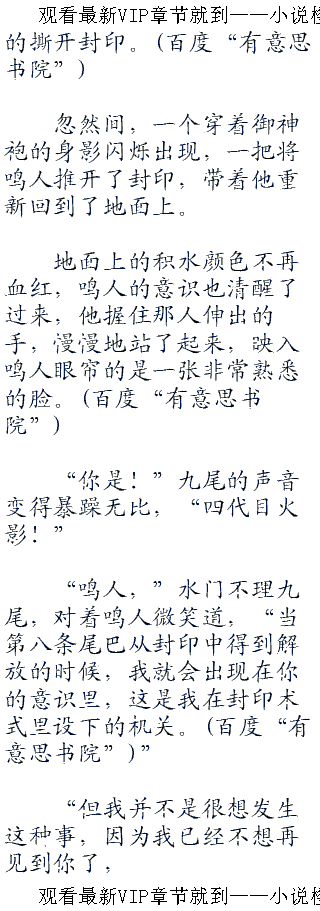 观看最新VIP章节就到——小说
的撕开封印。(百度“有意思
书院”)
忽然间，一个穿着御神
袍的身影闪烁出现，一把将
鸣人推开了封印，带着他重
新回到了地面上。
地面上的积水颜色不再
血红，鸣人的意识也清醒了
过来，他握住那人伸出的
手，慢慢地站了起来，映入
鸣人眼帘的是一张非常熟悉
的脸。(百度“有意思书
院”)
“你是！”九尾的声音
变得暴躁无比，“四代目火
影！”
“鸣人，”水门不理九
尾，对着鸣人微笑道，“当
第八条尾巴从封印中得到解
放的时候，我就会出现在你
的意识里，这是我在封印术
式里设下的机关。(百度“有
意思书院”)”
“但我并不是很想发生
这种事，因为我已经不想再
见到你了，
观看最新VIP章节就到——小说